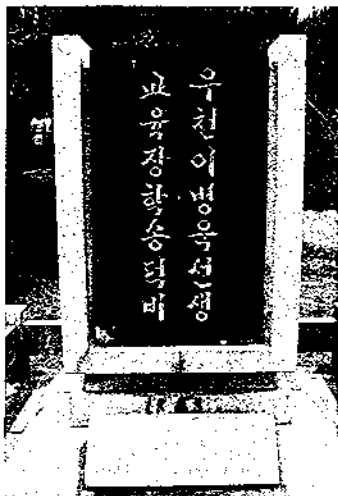 우천이병욱선생
교육장학송덕비